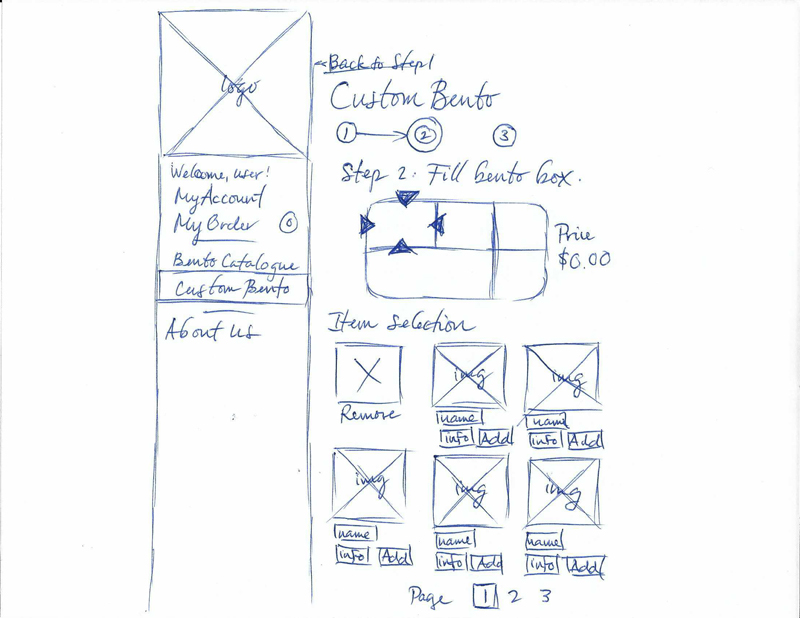 logo
Welcome, user!
My Account
My Order 0
Bento Catalogue
Custom Bento
About us
Back to Step 1
Custom Bento
1 2 3
Step 2. Fill bento box.
Price
$0.00
Item Selection
X img img
Remove name name
info Add info Add
img img img
name name name
info Add info Add info Add
Page 1 2 3